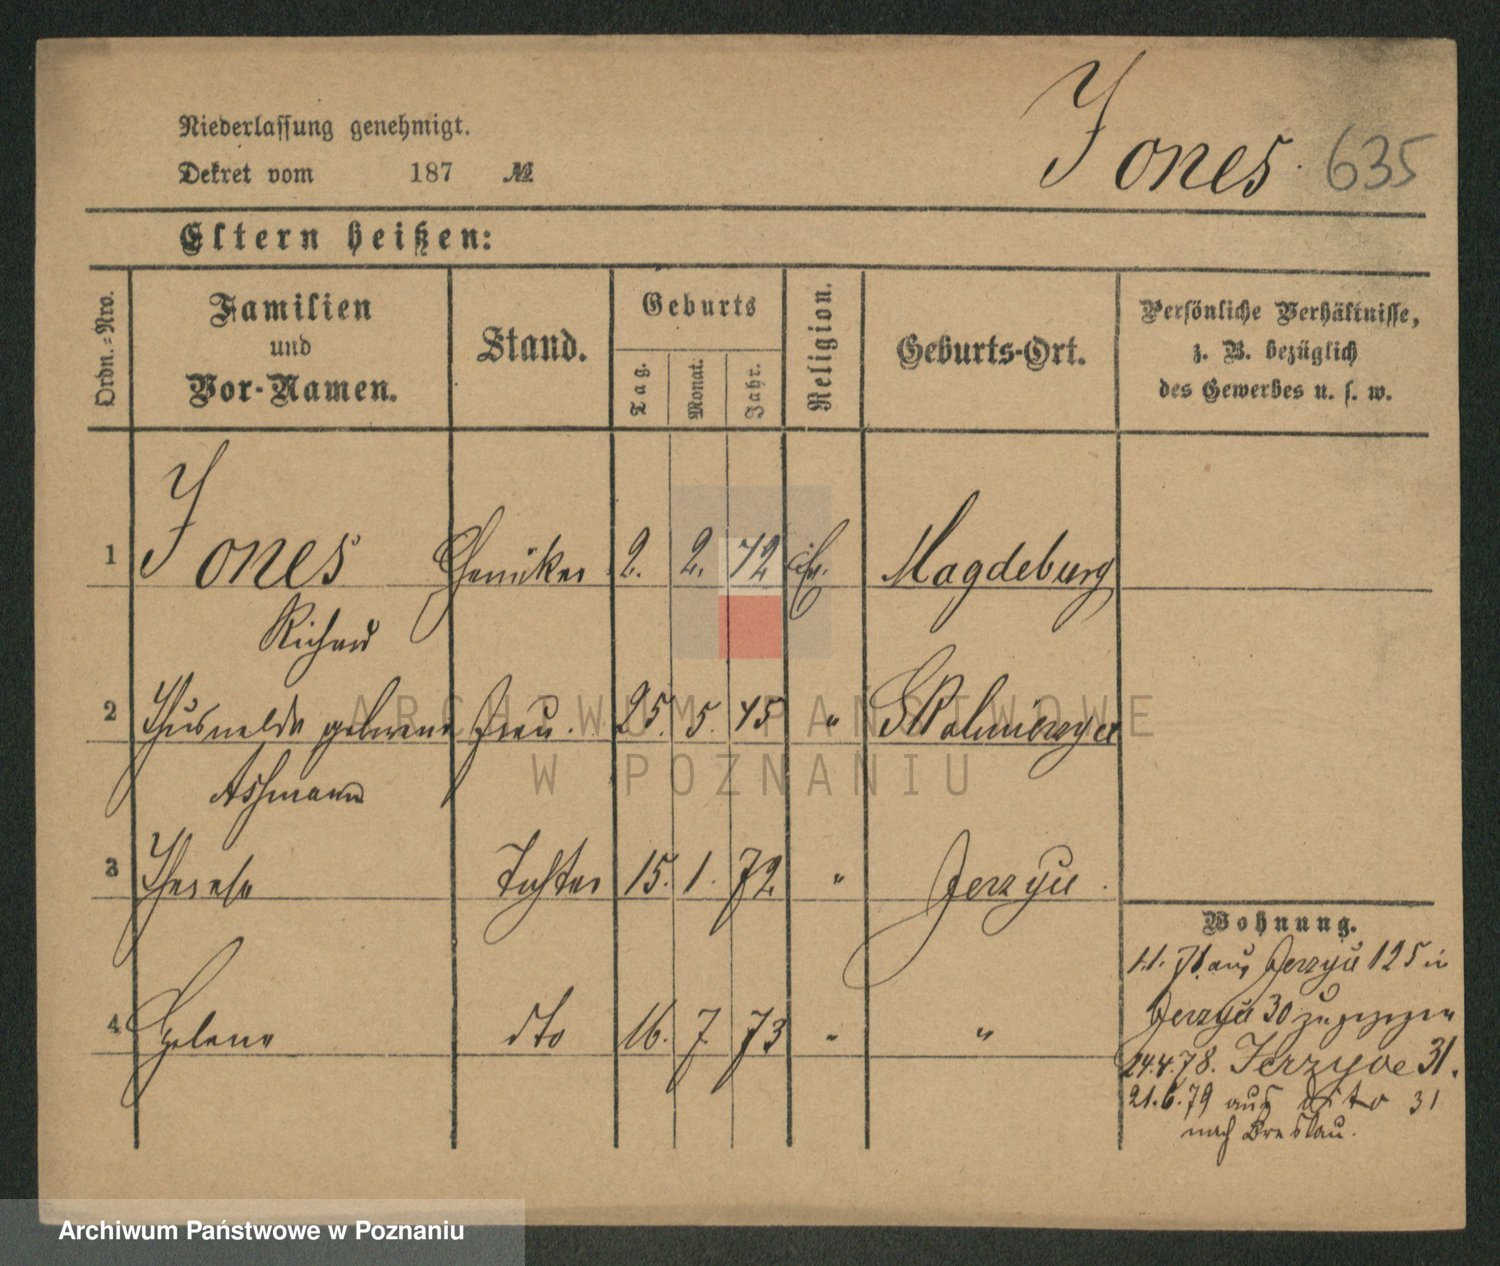 Jones 635
Niederlassung genehmigt.
Dekret vom 187 №
Eltern heißen:
Ordn.=Nro.
Familien
und
Vor-Namen.
Stand.
Geburts
Tag.
Monat.
Jahr.
Religion.
Geburts-Ort.
Persönliche Verhältnisse,
z. B. bezüglich
des Gewerbes u. s. w.
1 Jones Chemiker 2. 2. 42 Magdeburg
Richard
2 Thusnelda geborene Frau. 25. 5. 45 "
Assmann
3 Therese Tochter 15. 1. 72 " Jerzyce.
4 Helene dto 16. 7. 73 " "
Wohnung.
1.1.71 aus Jerzyce 125 in
Jerzyce 30 zugezogen
24.4.78. Jerzyce 31.
21.6.79 aus dito 31
nach Breslau.
ARCHIWUM PAŃSTWOWE
W POZNANIU
Archiwum Państwowe w Poznaniu